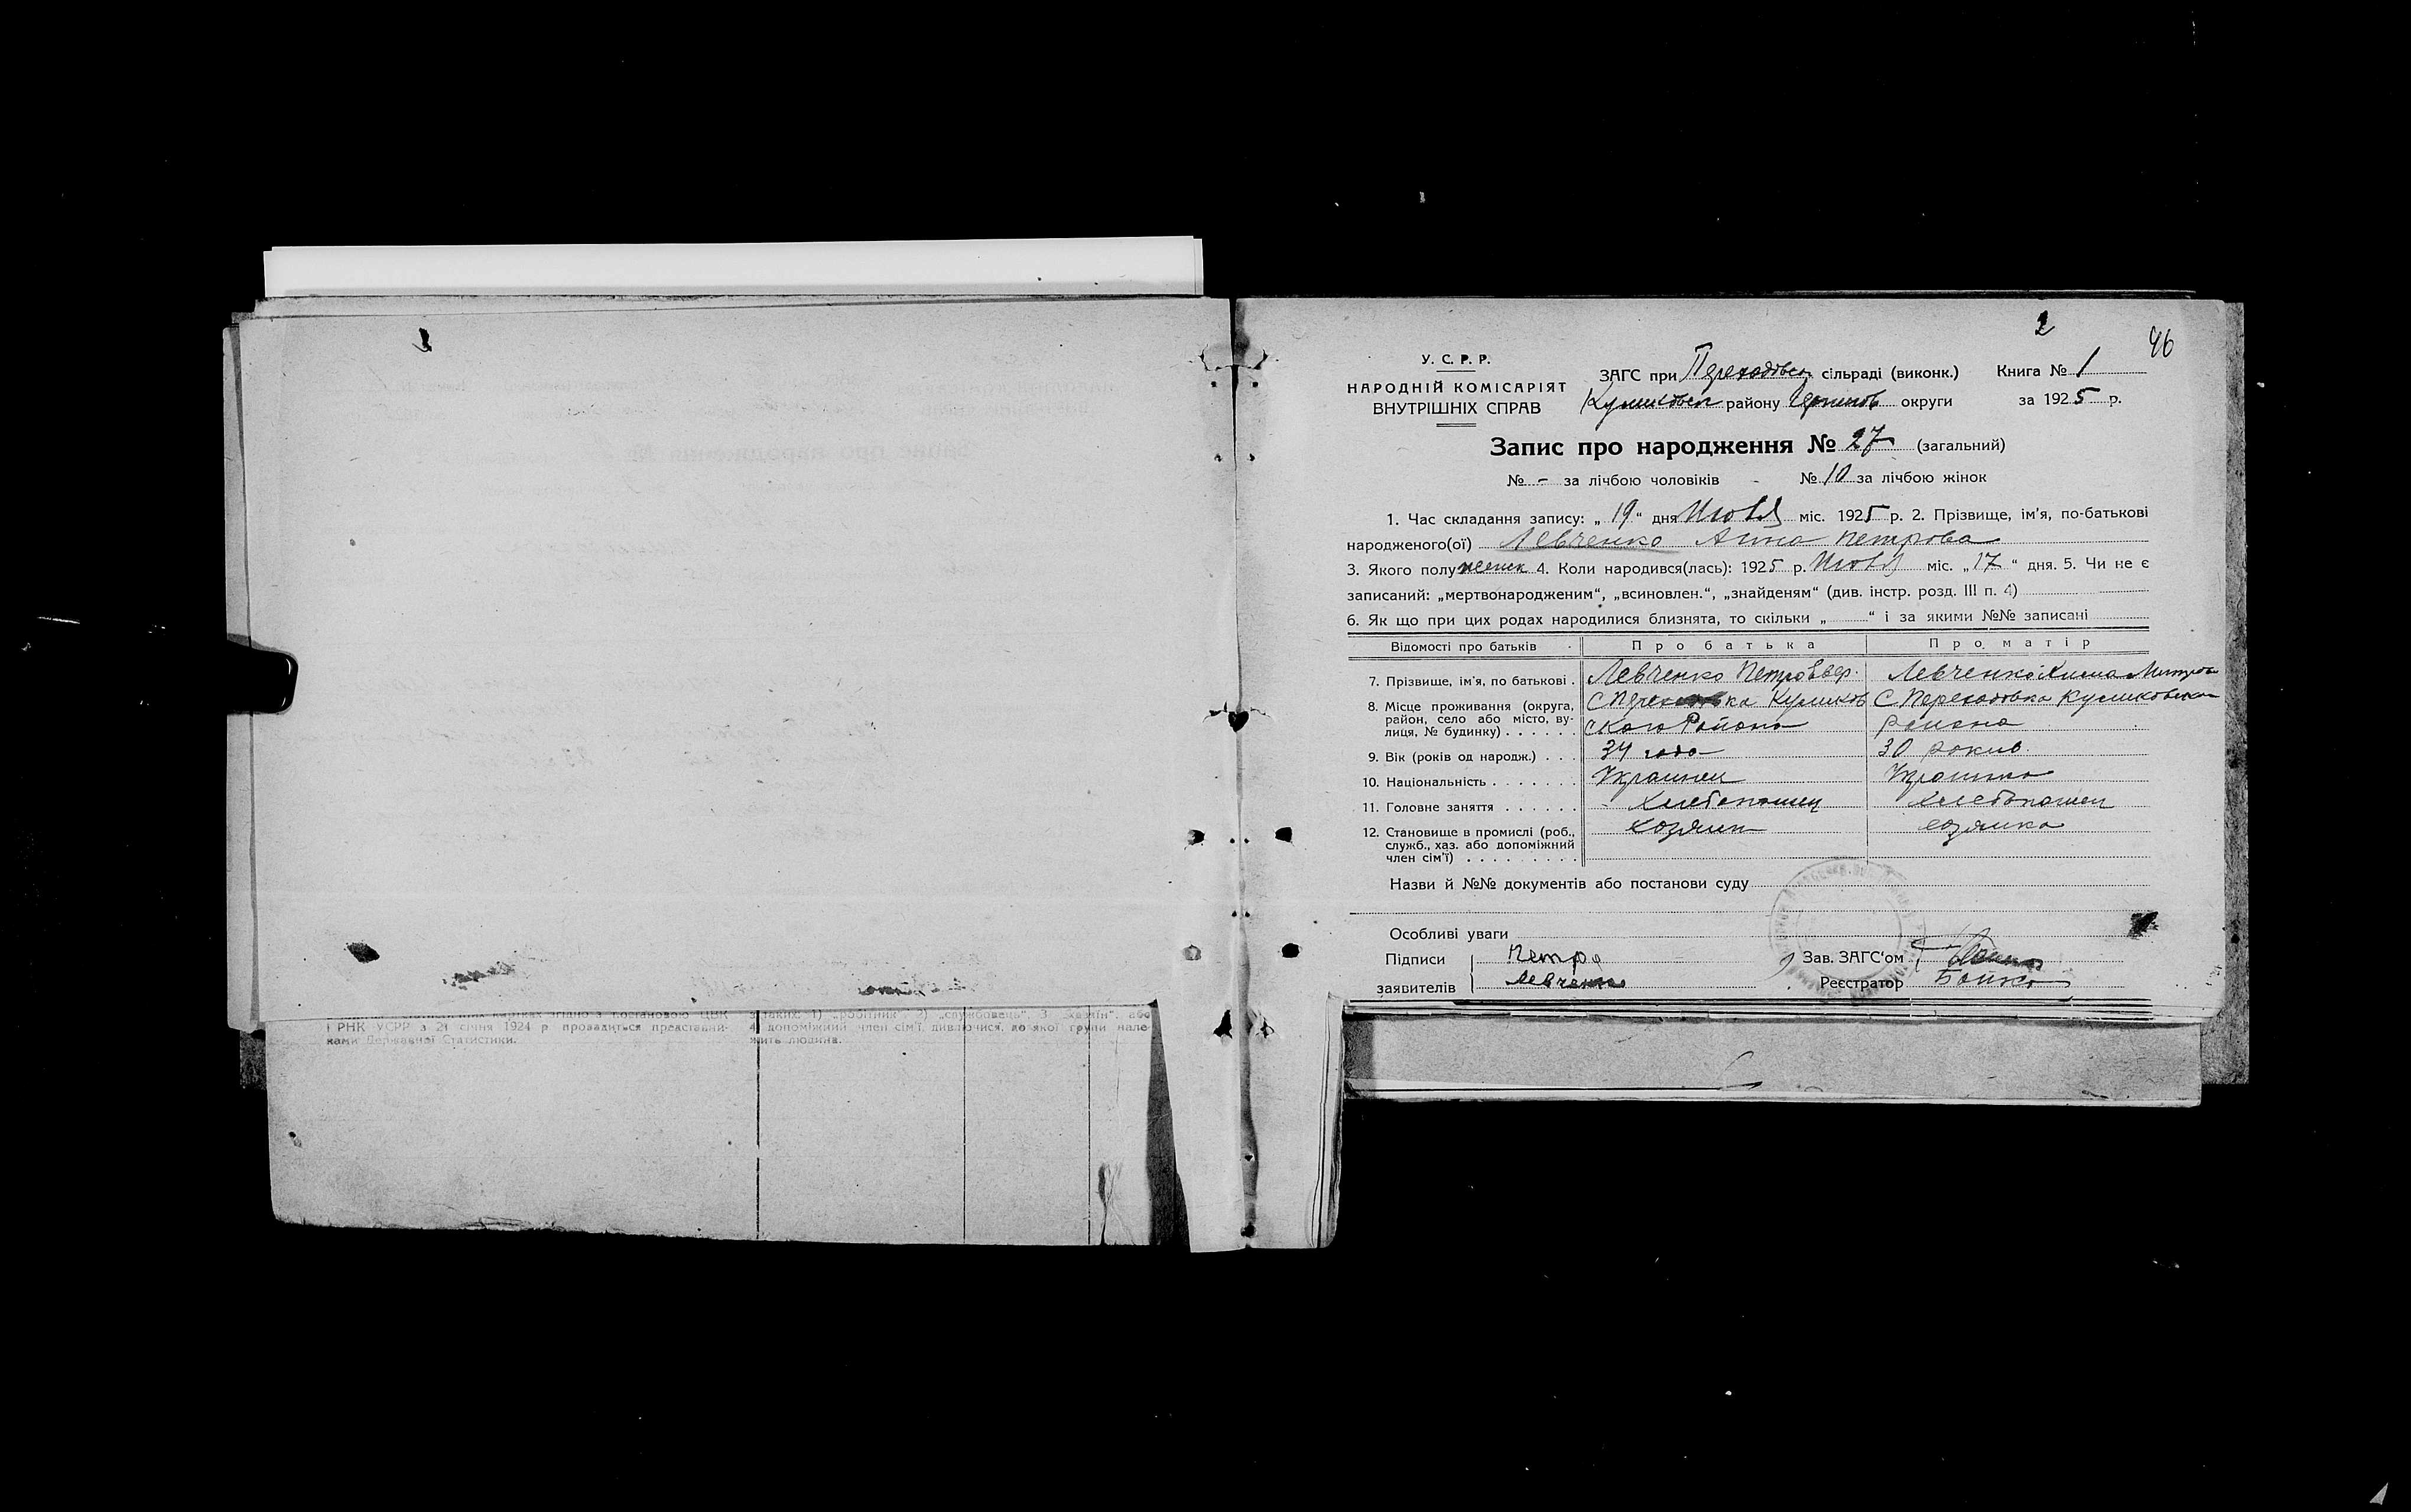 2
46
У. С. Р. Р.
НАРОДНІЙ КОМІСАРІЯТ
ВНУТРІШНІХ СПРАВ
ЗАГС при Переходовск сільраді (виконк.) Книга № 1
Куликовск району Чернигов округи за 1925 р.
Запис про народження № 27 (загальний)
№ - за лічбою чоловіків № 10 за лічбою жінок
1. Час складання запису: „ 19 “ дня міс. 1925 р. 2. Прізвище, ім'я, по-батькові
народженого(ої) Левченко Анна Петрова
3. Якого полу женск 4. Коли народився(лась): 1925 р. міс. „ 17 “ дня. 5. Чи не є
записаний: „мертвонародженим“, „всиновлен.“, „знайденям“ (див. інстр. розд. III п. 4)
6. Як що при цих родах народилися близнята, то скільки „ “ і за якими №№ записані
Відомості про батьків Про батька Про матір
7. Прізвище, ім'я, по батькові . Левченко Петро Левченко
8. Місце проживання (округа, С Переходовка Куликов С Переходовка Куликовска
район, село або місто, ву-
лиця, № будинку) . . . . . . ского Района Района
9. Вік (років од народж.) . . . 34 года 30 рокив
10. Національність . . . . . . . Украинец Украинка
11. Головне заняття . . . . . . Хлебопашец Хлебопашец
12. Становище в промислі (роб., хозяин хозяика
служб., хаз. або допоміжний
член сім'ї) . . . . . . . . .
Назви й №№ документів або постанови суду
Особливі уваги
Підписи Петро Зав. ЗАГС'ом
заявителів Левченко Реєстратор Бойко
картках згідно з постановою ЦВК
і РНК УСРР з 21 січня 1924 р провадиться представни-
ками Державної Статистики.
з таких: 1) „робітник“, 2) „службовець“, 3 „хазяїн“, або
4) допоміжний член сім'ї, дивлючися, до якої групи нале-
жить людина.